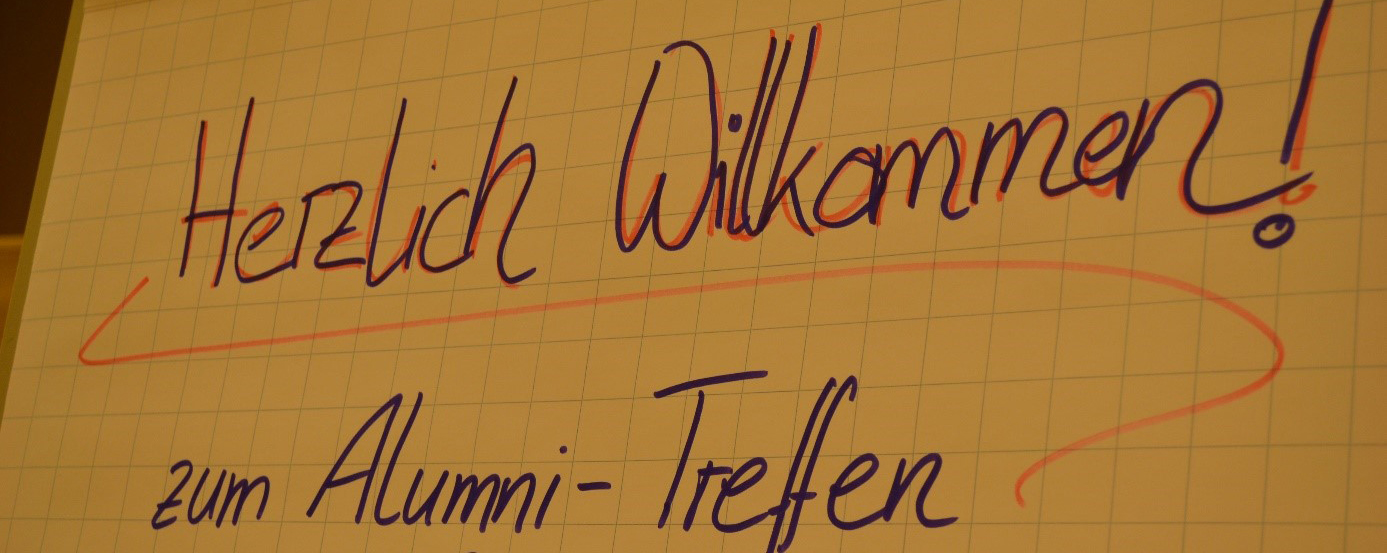 Herzlich Willkommen!
zum Alumni-Treffen